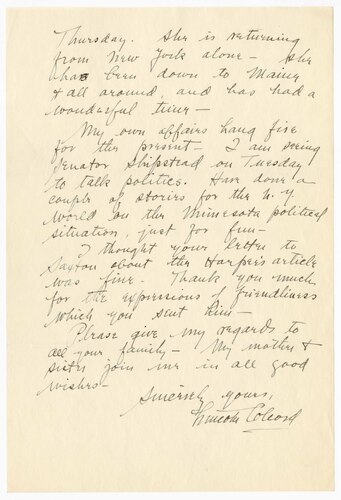 Thursday. She is returning
from New York alone - She
has been down to Maine
& all around, and has had a
wonderful time -
My own affairs hang fire
for the present - I am seeing
Senator Shipstead on Tuesday
to talk politics. Have done a
couple of stories for the N.Y
World on the Minnesota political
situation, just for fun -
I thought your letter to
about the Harper's article
was fine. Thank you much
for the expressions of friendliness
which you sent him -
Please give my regards to
all your family - My mother &
sister join me in all good
wishes -
Sincerely yours,
Lincoln Colcord